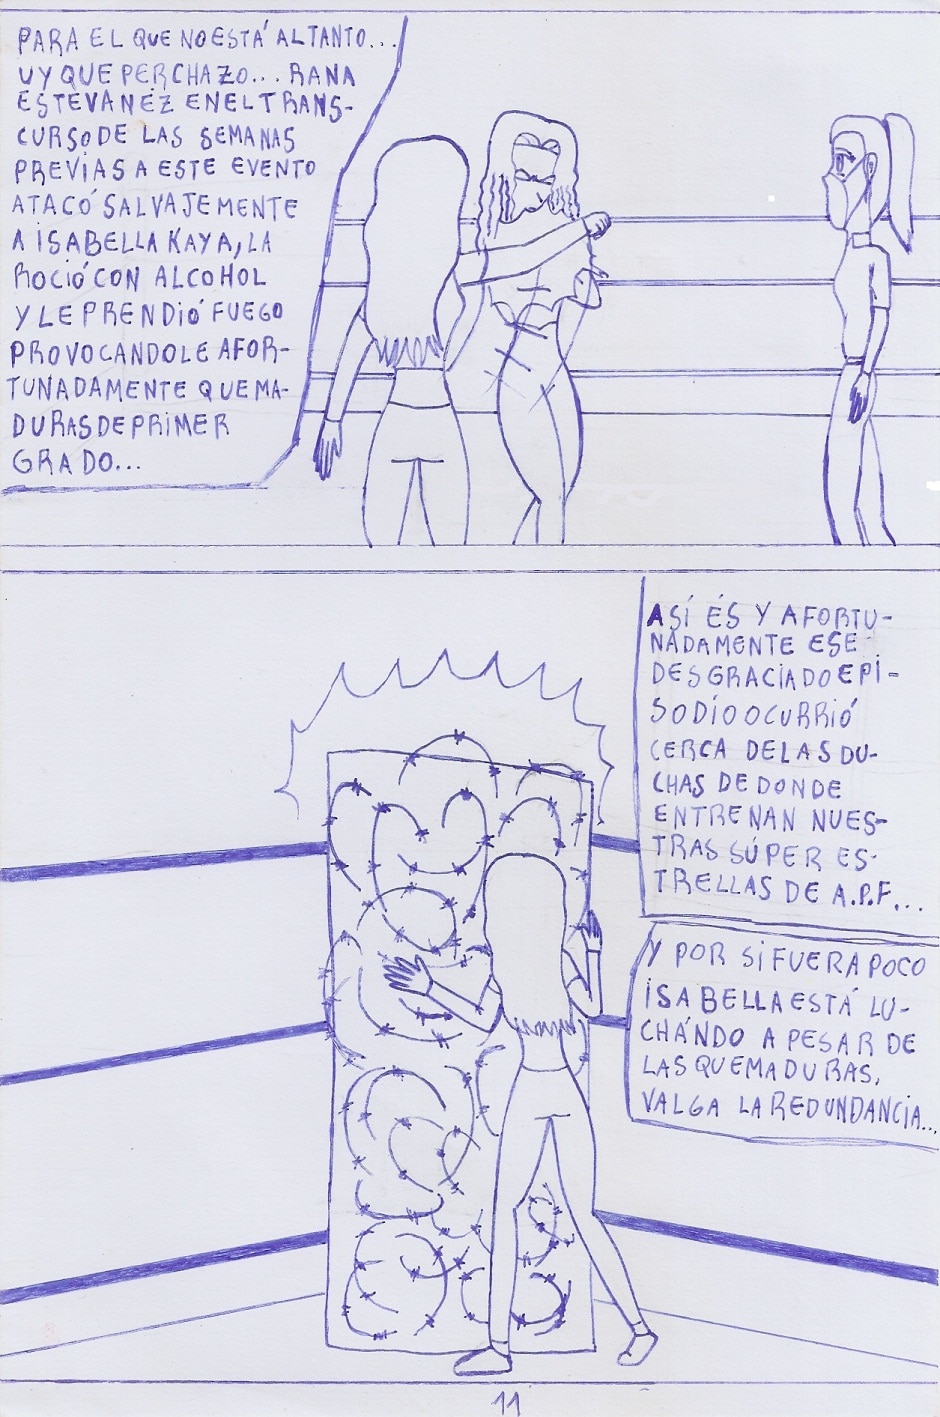 PARA EL QUE NO ESTÁ AL TANTO...
UY QUE PERCHAZO... RANA
ESTEVANEZ EN EL TRANS-
CURSO DE LAS SEMANAS
PREVIAS A ESTE EVENTO
ATACÓ SALVAJEMENTE
A ISABELLA KAYA, LA
ROCIÓ CON ALCOHOL
Y LE PRENDIÓ FUEGO
PROVOCANDOLE AFOR-
TUNADAMENTE QUEMA-
DURAS DE PRIMER
GRADO...
ASÍ ÉS Y AFORTU-
NADAMENTE ESE
DESGRACIADO EPI-
SODIO OCURRIÓ
CERCA DE LAS DU-
CHAS DE DONDE
ENTRENAN NUES-
TRAS SÚPER ES-
TRELLAS DE A.P.F...
Y POR SI FUERA POCO
ISABELLA ESTÁ LU-
CHÁNDO A PESAR DE
LAS QUEMADURAS,
VALGA LA REDUNDANCIA...
11